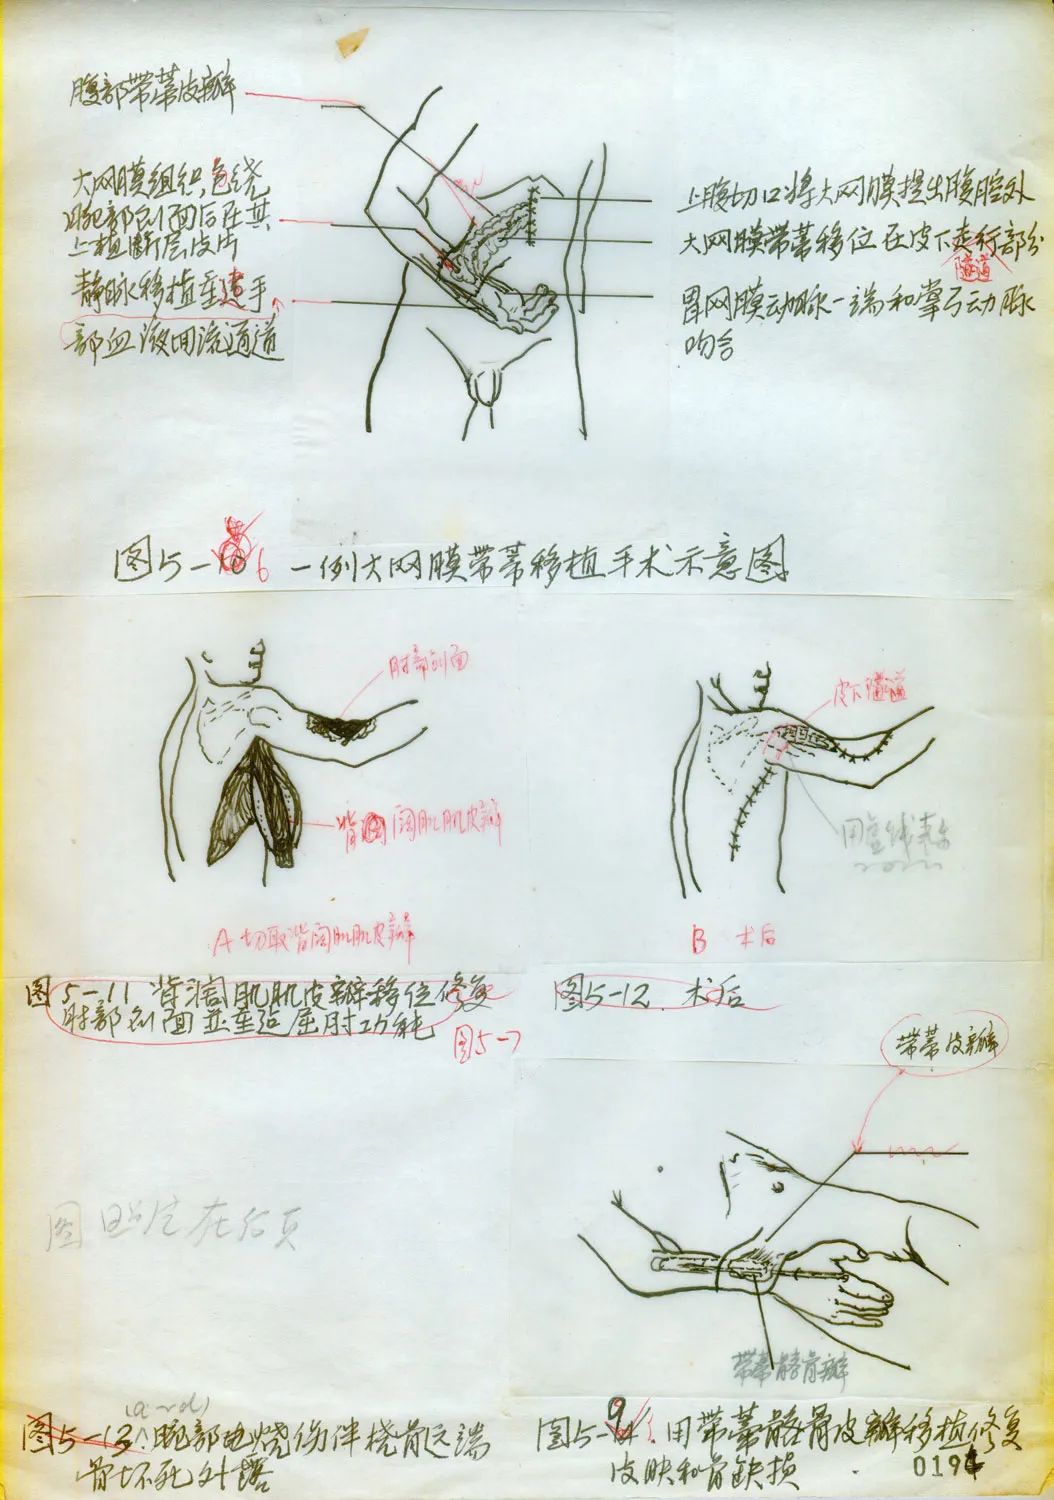 腹部带蒂皮瓣
大网膜组织包绕
腕部创面后在其
上植断层皮片
静脉移植重建手
部血液回流通道
上腹切口将大网膜提出腹腔外
大网膜带蒂移位在皮下走行部分
隧道
胃网膜动脉一端和掌弓动脉
吻合
图5-6 一例大网膜带蒂移植手术示意图
肘部创面
背阔肌肌皮瓣
A 切取背阔肌肌皮瓣
皮下隧道
用虚线表示
B 术后
图5-11 背阔肌肌皮瓣移位修复
肘部创面并重造屈肘功能
图5-7
图5-12. 术后
带蒂皮瓣
图照片在后页
带蒂髂骨瓣
(a~d)
图5-13. 腕部电烧伤伴桡骨远端
骨坏死外露
图5-9. 用带蒂髂骨皮瓣移植修复
皮肤和骨缺损
0194